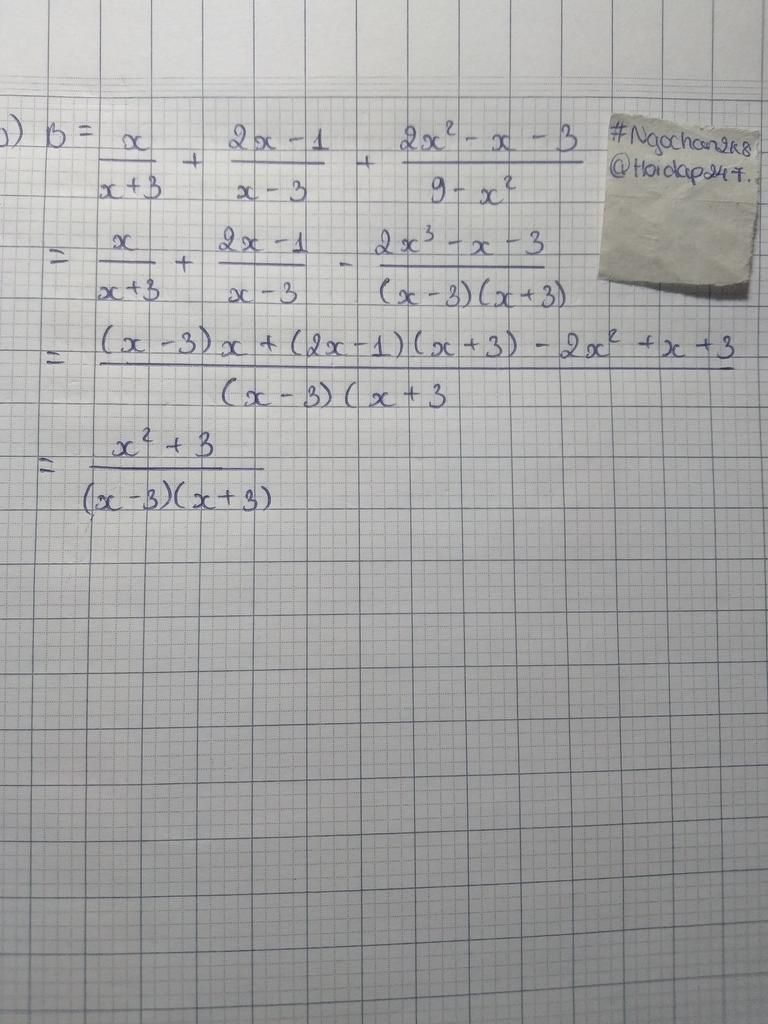 b) B = x/(x+3) + (2x-1)/(x-3) + (2x² - x - 3)/(9 - x²)
= x/(x+3) + (2x-1)/(x-3) - (2x³ - x - 3)/((x-3)(x+3))
= ((x-3)x + (2x-1)(x+3) - 2x² + x + 3)/((x-3)(x+3
= (x² + 3)/((x-3)(x+3))
#Ngochan2k8
@Hoidap247.